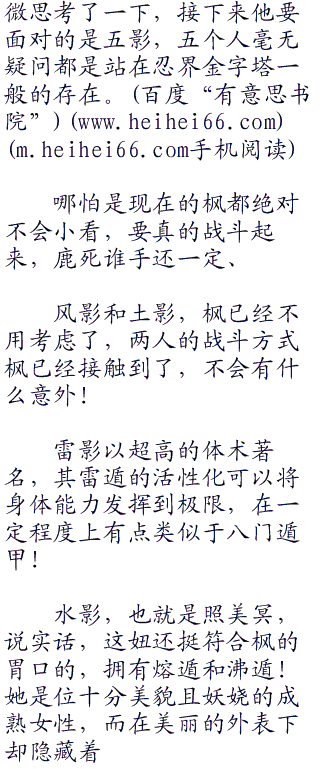 微思考了一下，接下来他要
面对的是五影，五个人毫无
疑问都是站在忍界金字塔一
般的存在。(百度“有意思书
院”)(www.heihei66.com)
(m.heihei66.com手机阅读)
哪怕是现在的枫都绝对
不会小看，要真的战斗起
来，鹿死谁手还一定、
风影和土影，枫已经不
用考虑了，两人的战斗方式
枫已经接触到了，不会有什
么意外！
雷影以超高的体术著
名，其雷遁的活性化可以将
身体能力发挥到极限，在一
定程度上有点类似于八门遁
甲！
水影，也就是照美冥，
说实话，这妞还挺符合枫的
胃口的，拥有熔遁和沸遁！
她是位十分美貌且妖娆的成
熟女性，而在美丽的外表下
却隐藏着